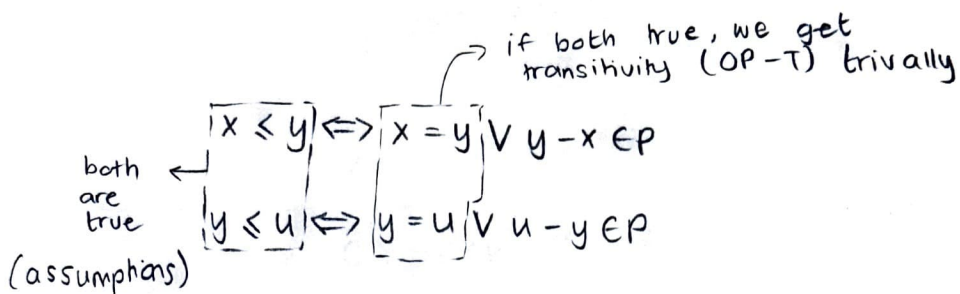 if both true, we get
transitivity (OP-T) trivally
x ⩽ y ⟺ x = y ∨ y - x ∈ P
both
are
true
(assumptions)
y ⩽ u ⟺ y = u ∨ u - y ∈ P